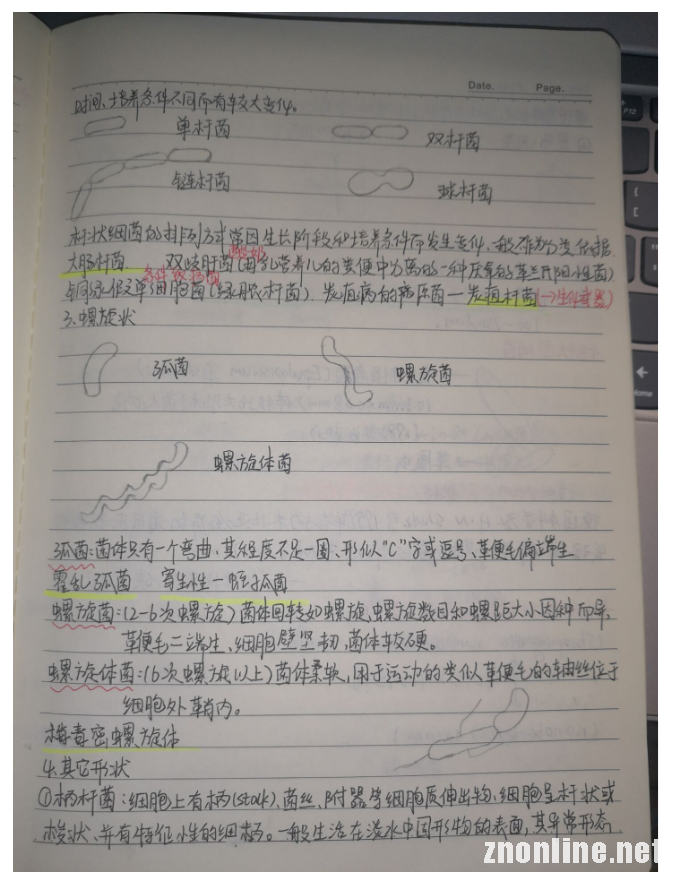 Date. Page.
时间、培养条件不同而有较大变化。
单杆菌 双杆菌
链杆菌 球杆菌
杆状细菌的排列方式常因生长阶段和培养条件而发生变化,一般不作为分类依据
大肠杆菌 双歧杆菌(由乳营养儿的粪便中分离的一种厌氧的革兰氏阳性菌)
(绿脓杆菌)、炭疽病的病原菌—炭疽杆菌(→生化武器)
3.螺旋状
弧菌 螺旋菌
螺旋体菌
弧菌:菌体只有一个弯曲,其程度不足一圈,形似"C"字或逗号,革便毛偏端生
霍乱弧菌 寄生性—蛭弧菌
螺旋菌:(2-6次螺旋)菌体回转如螺旋,螺旋数目和螺距大小因种而异,
革便毛二端生,细胞壁坚韧,菌体较硬。
螺旋体菌:(6次螺旋以上)菌体柔软,用于运动的类似革便毛的轴丝位于
细胞外鞘内。
梅毒密螺旋体
4.其它形状
①柄杆菌:细胞上有柄(stalk)、菌丝、附器等细胞质伸出物,细胞呈杆状或
梭状,并有特征性的细柄。一般生活在淡水中固形物的表面,其异常形态
znonline.net
F12
Home